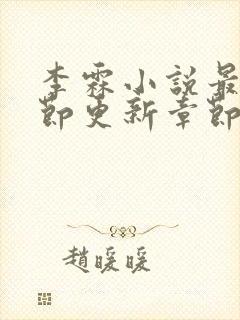 李霖小說最
節更新章節
趙暖暖